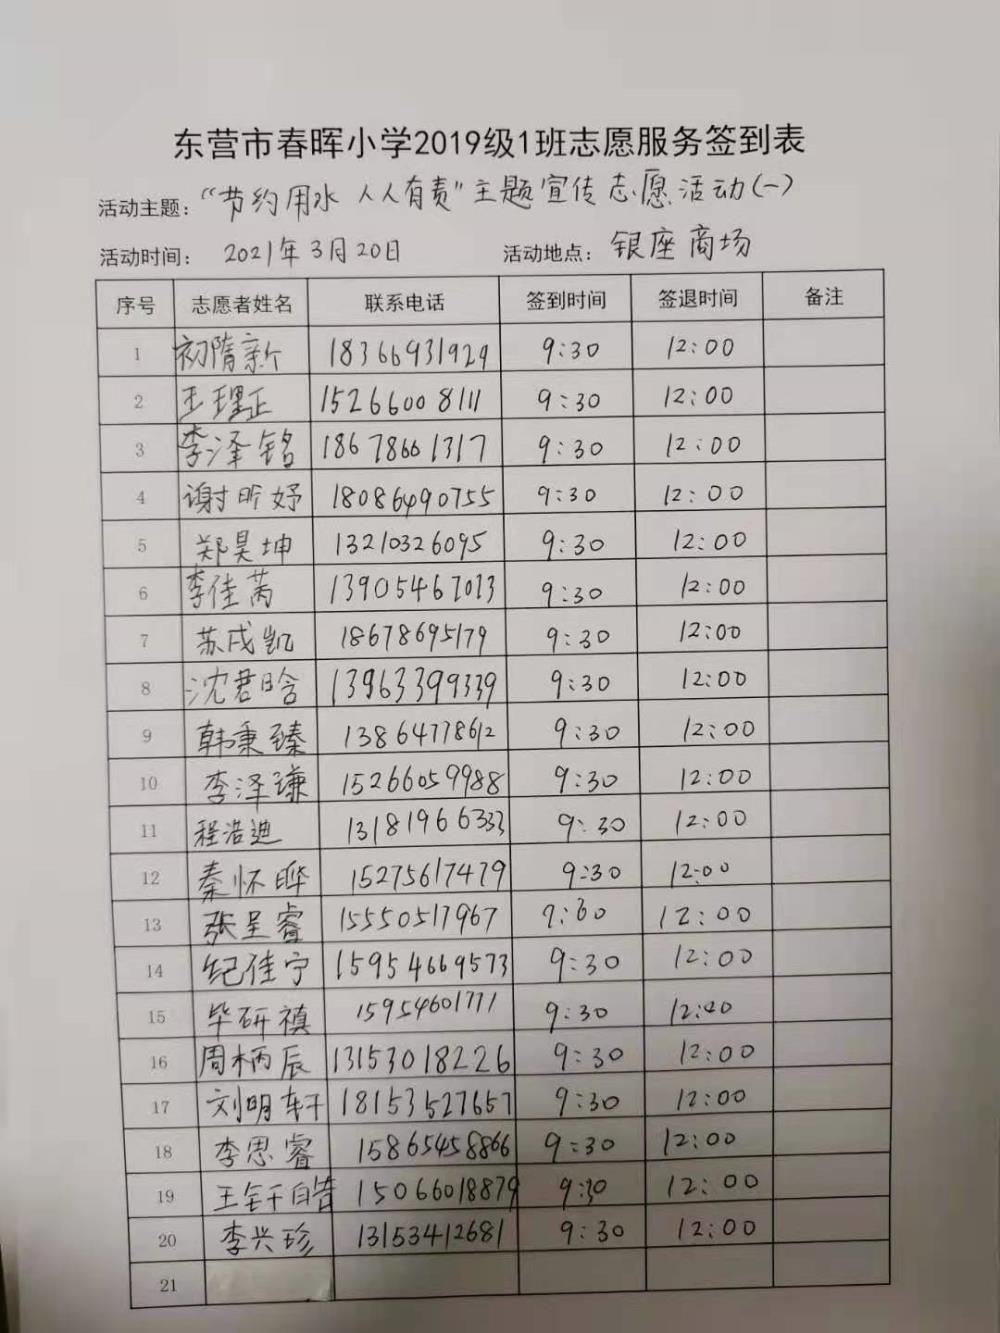 东营市春晖小学2019级1班志愿服务签到表
活动主题：“节约用水 人人有责”主题宣传志愿活动(一)
活动时间： 2021年3月20日 活动地点： 银座商场
序号 志愿者姓名 联系电话 签到时间 签退时间 备注
1 初隋新 18366931929 9:30 12:00
2 王理正 15266008111 9:30 12:00
3 李泽铭 18678661317 9:30 12:00
4 谢昕妤 18086490755 9:30 12:00
5 郑昊坤 13210326095 9:30 12:00
6 李佳芮 13905467013 9:30 12:00
7 苏成凯 18678695179 9:30 12:00
8 沈君晗 13963399339 9:30 12:00
9 韩秉臻 13864778612 9:30 12:00
10 李泽谦 15266059988 9:30 12:00
11 程浩迪 13181966333 9:30 12:00
12 秦怀晔 15275617479 9:30 12:00
13 张呈睿 15550517967 9:30 12:00
14 纪佳宁 15954669573 9:30 12:00
15 毕研禛 15954601771 9:30 12:00
16 周柄辰 13153018226 9:30 12:00
17 刘明轩 18153527657 9:30 12:00
18 李思睿 15865458866 9:30 12:00
19 王钰皓 15066018879 9:30 12:00
20 李兴珍 13153412681 9:30 12:00
21